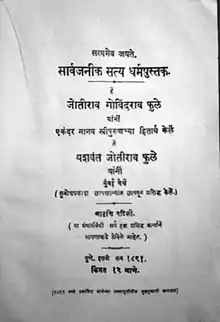 सत्यमेव जयते.
सार्वजनीक सत्य धर्मपुस्तक.
हें
जोतीराव गोविंदराव फुले
यांनीं
एकंदर मानव स्त्रीपुरुषांच्या हितार्थ केलें
तें
यशवंत जोतीराव फुले
यांनीं
मुंबई येथें
( सुबोधप्रकाश छापखान्यांत छापवून प्रसिद्ध केलें. )
आवृत्ति पहिली.
( या ग्रंथासंबंधी सर्व हक्क प्रसिद्ध कर्त्यानें
आपणाकडे ठेविले आहेत. )
पुणें, इसवी सन १८९१.
किंमत १२ आणे.